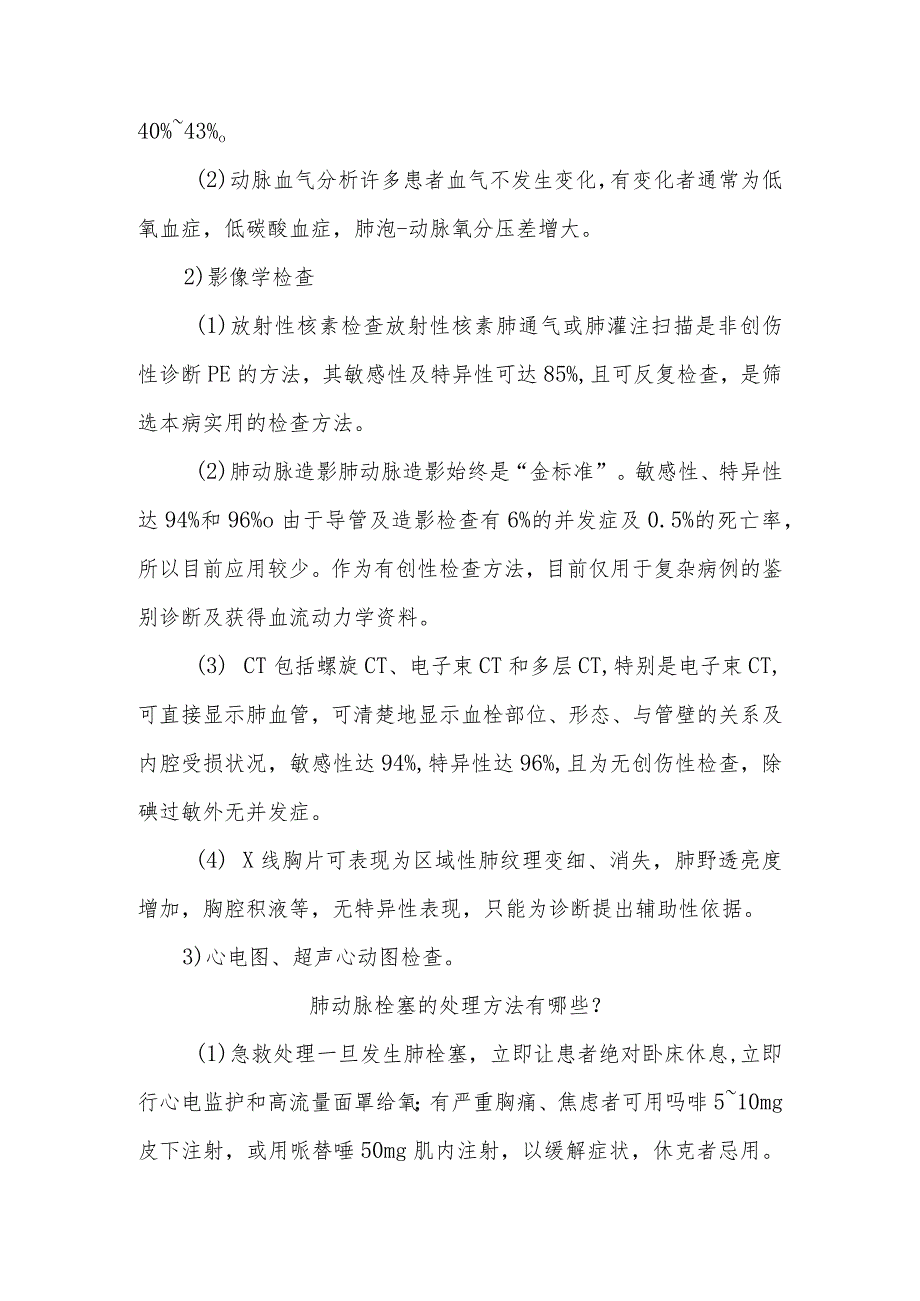 40%~43%。
(2)动脉血气分析许多患者血气不发生变化,有变化者通常为低
氧血症，低碳酸血症，肺泡-动脉氧分压差增大。
2)影像学检查
(1)放射性核素检查放射性核素肺通气或肺灌注扫描是非创伤
性诊断PE的方法，其敏感性及特异性可达85%,且可反复检查，是筛
选本病实用的检查方法。
(2)肺动脉造影肺动脉造影始终是“金标准”。敏感性、特异性
达94%和96%o由于导管及造影检查有6%的并发症及0.5%的死亡率，
所以目前应用较少。作为有创性检查方法，目前仅用于复杂病例的鉴
别诊断及获得血流动力学资料。
(3) CT包括螺旋CT、电子束CT和多层CT,特别是电子束CT,
可直接显示肺血管，可清楚地显示血栓部位、形态、与管壁的关系及
内腔受损状况，敏感性达94%,特异性达96%,且为无创伤性检查，除
碘过敏外无并发症。
(4) X线胸片可表现为区域性肺纹理变细、消失，肺野透亮度
增加，胸腔积液等，无特异性表现，只能为诊断提出辅助性依据。
3)心电图、超声心动图检查。
肺动脉栓塞的处理方法有哪些？
(1)急救处理一旦发生肺栓塞，立即让患者绝对卧床休息,立即
行心电监护和高流量面罩给氧;有严重胸痛、焦虑者可用吗啡5~10mg
皮下注射，或用哌替唾50mg肌内注射，以缓解症状，休克者忌用。